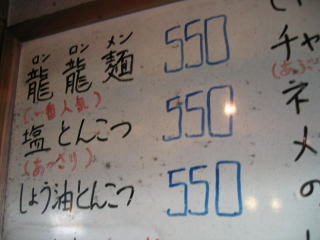 ロン ロン メン
龍 龍 麺 550
(一番人気)
塩とんこつ 550
(あっさり)
しょう油とんこつ 550
チャ
ネ
メ
の